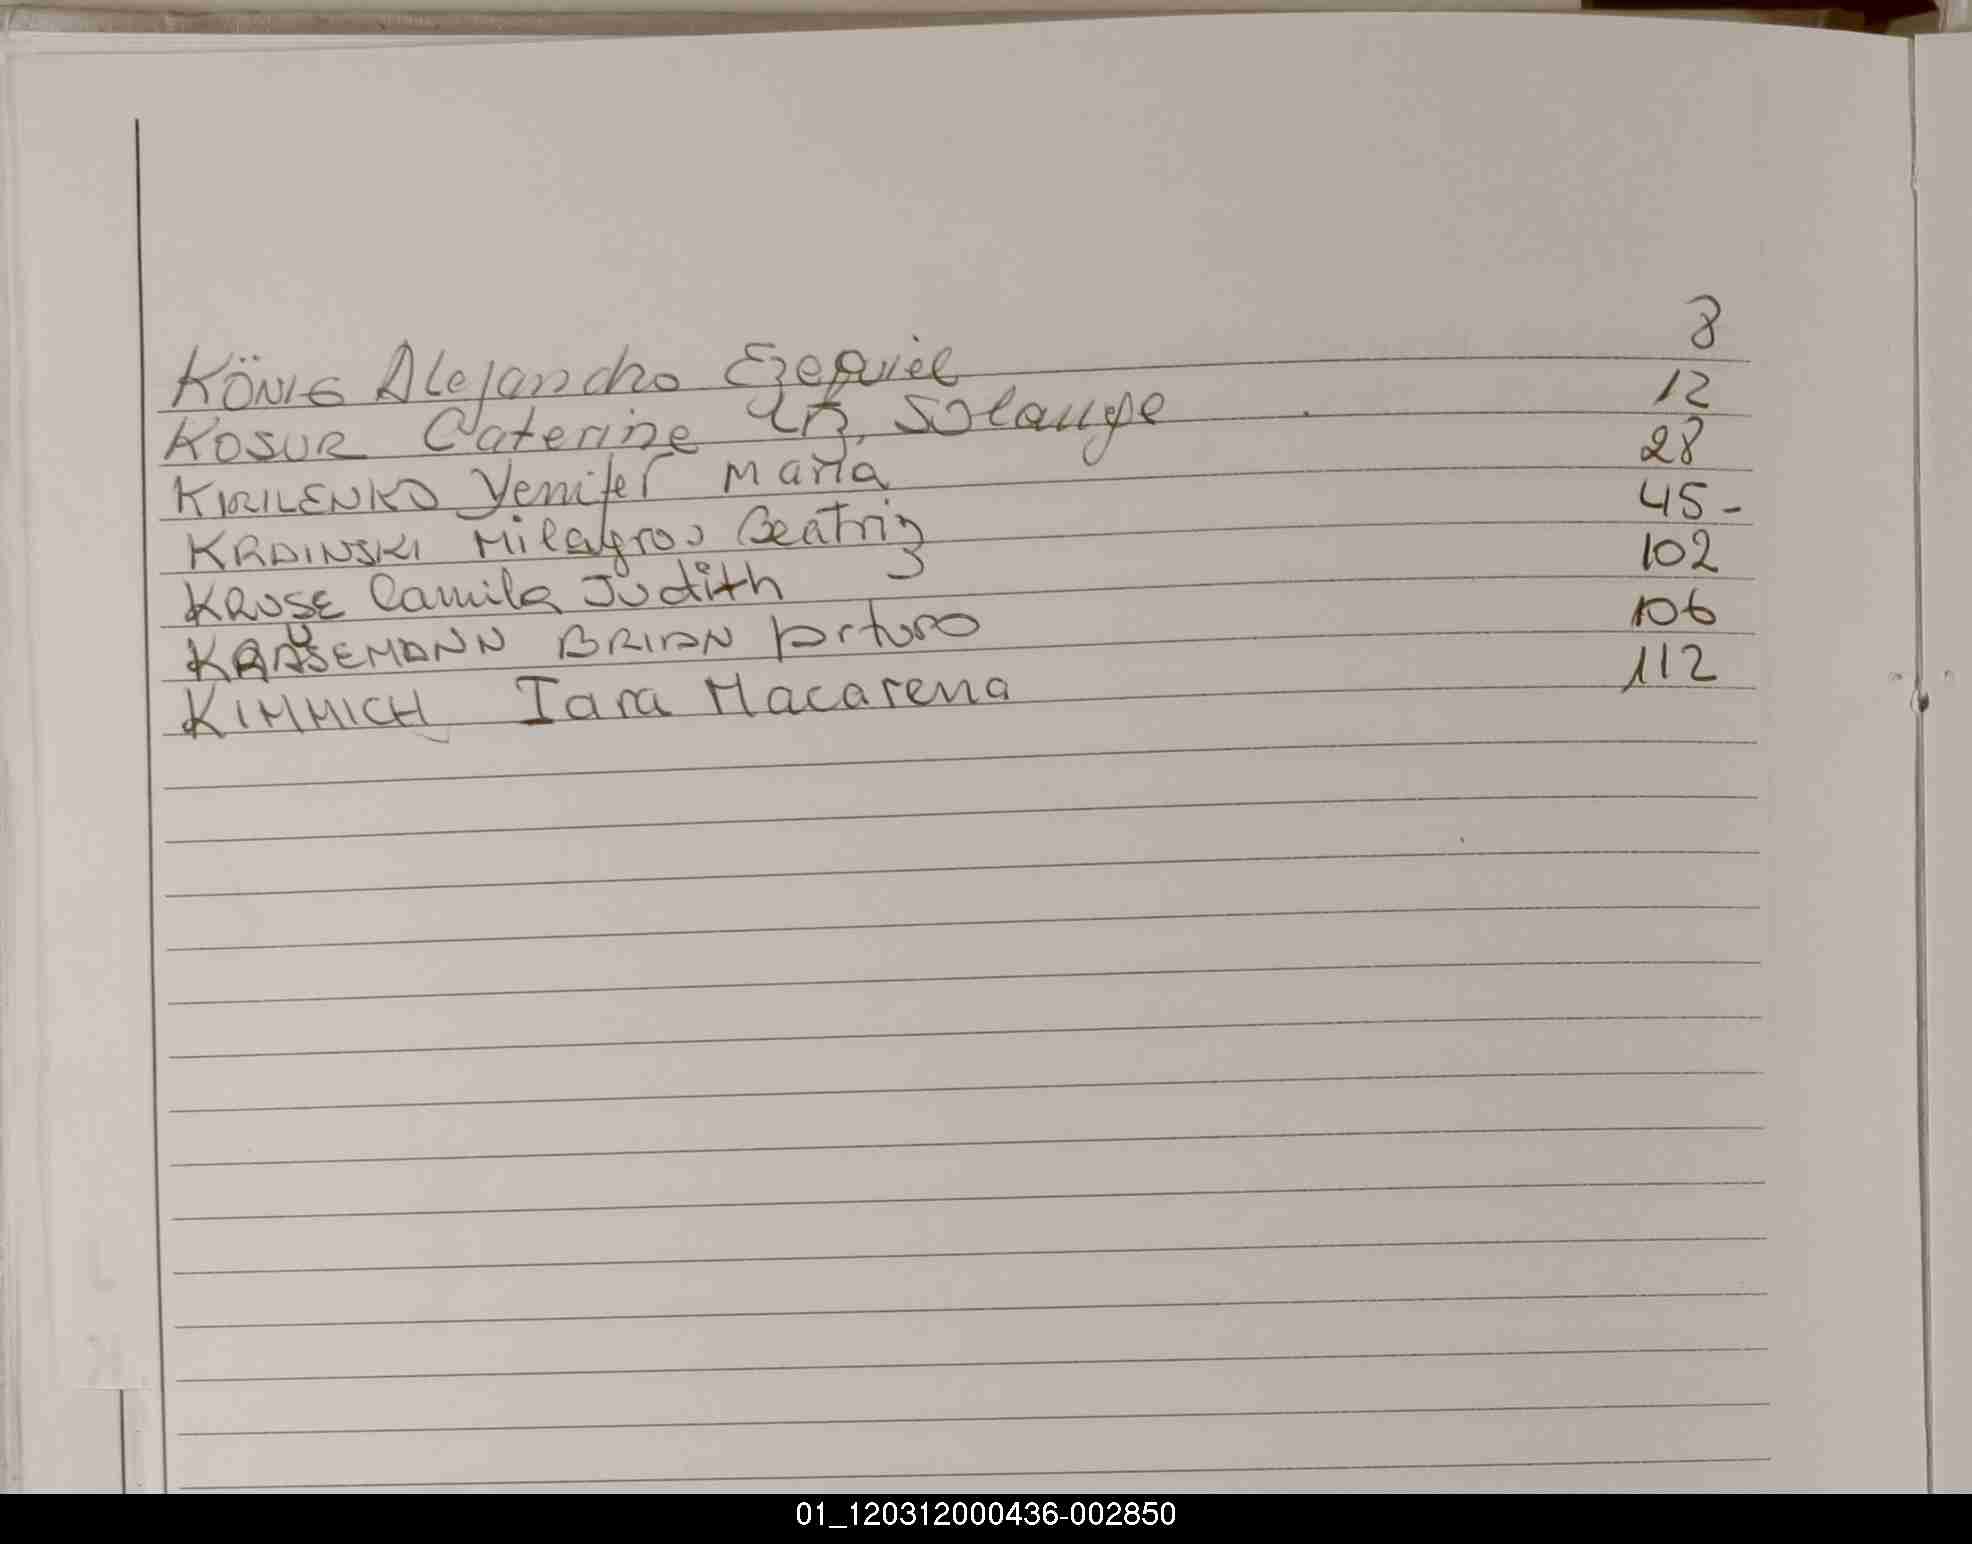 KÖNIG Alejandro Ezequiel 8
KOSUR Caterine Solange 12
KIRILENKO Yenifer Maria 28
KRAINSKI Milagros Beatriz 45-
KRUSE Camila Judith 102
KRAUSEMANN BRIAN Arturo 106
KIMMICH Iara Macarena 112
01_120312000436-002850